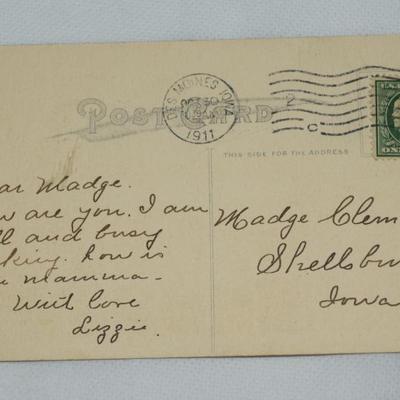 DES MOINES, IOWA
1911
2
C
POST CARD
THIS SIDE FOR THE ADDRESS
ar Madge.
ow are you. I am
ll and busy
king. how is
mamma-
With love
Lizzie.
Madge Clem
Shellsbu
Iowa